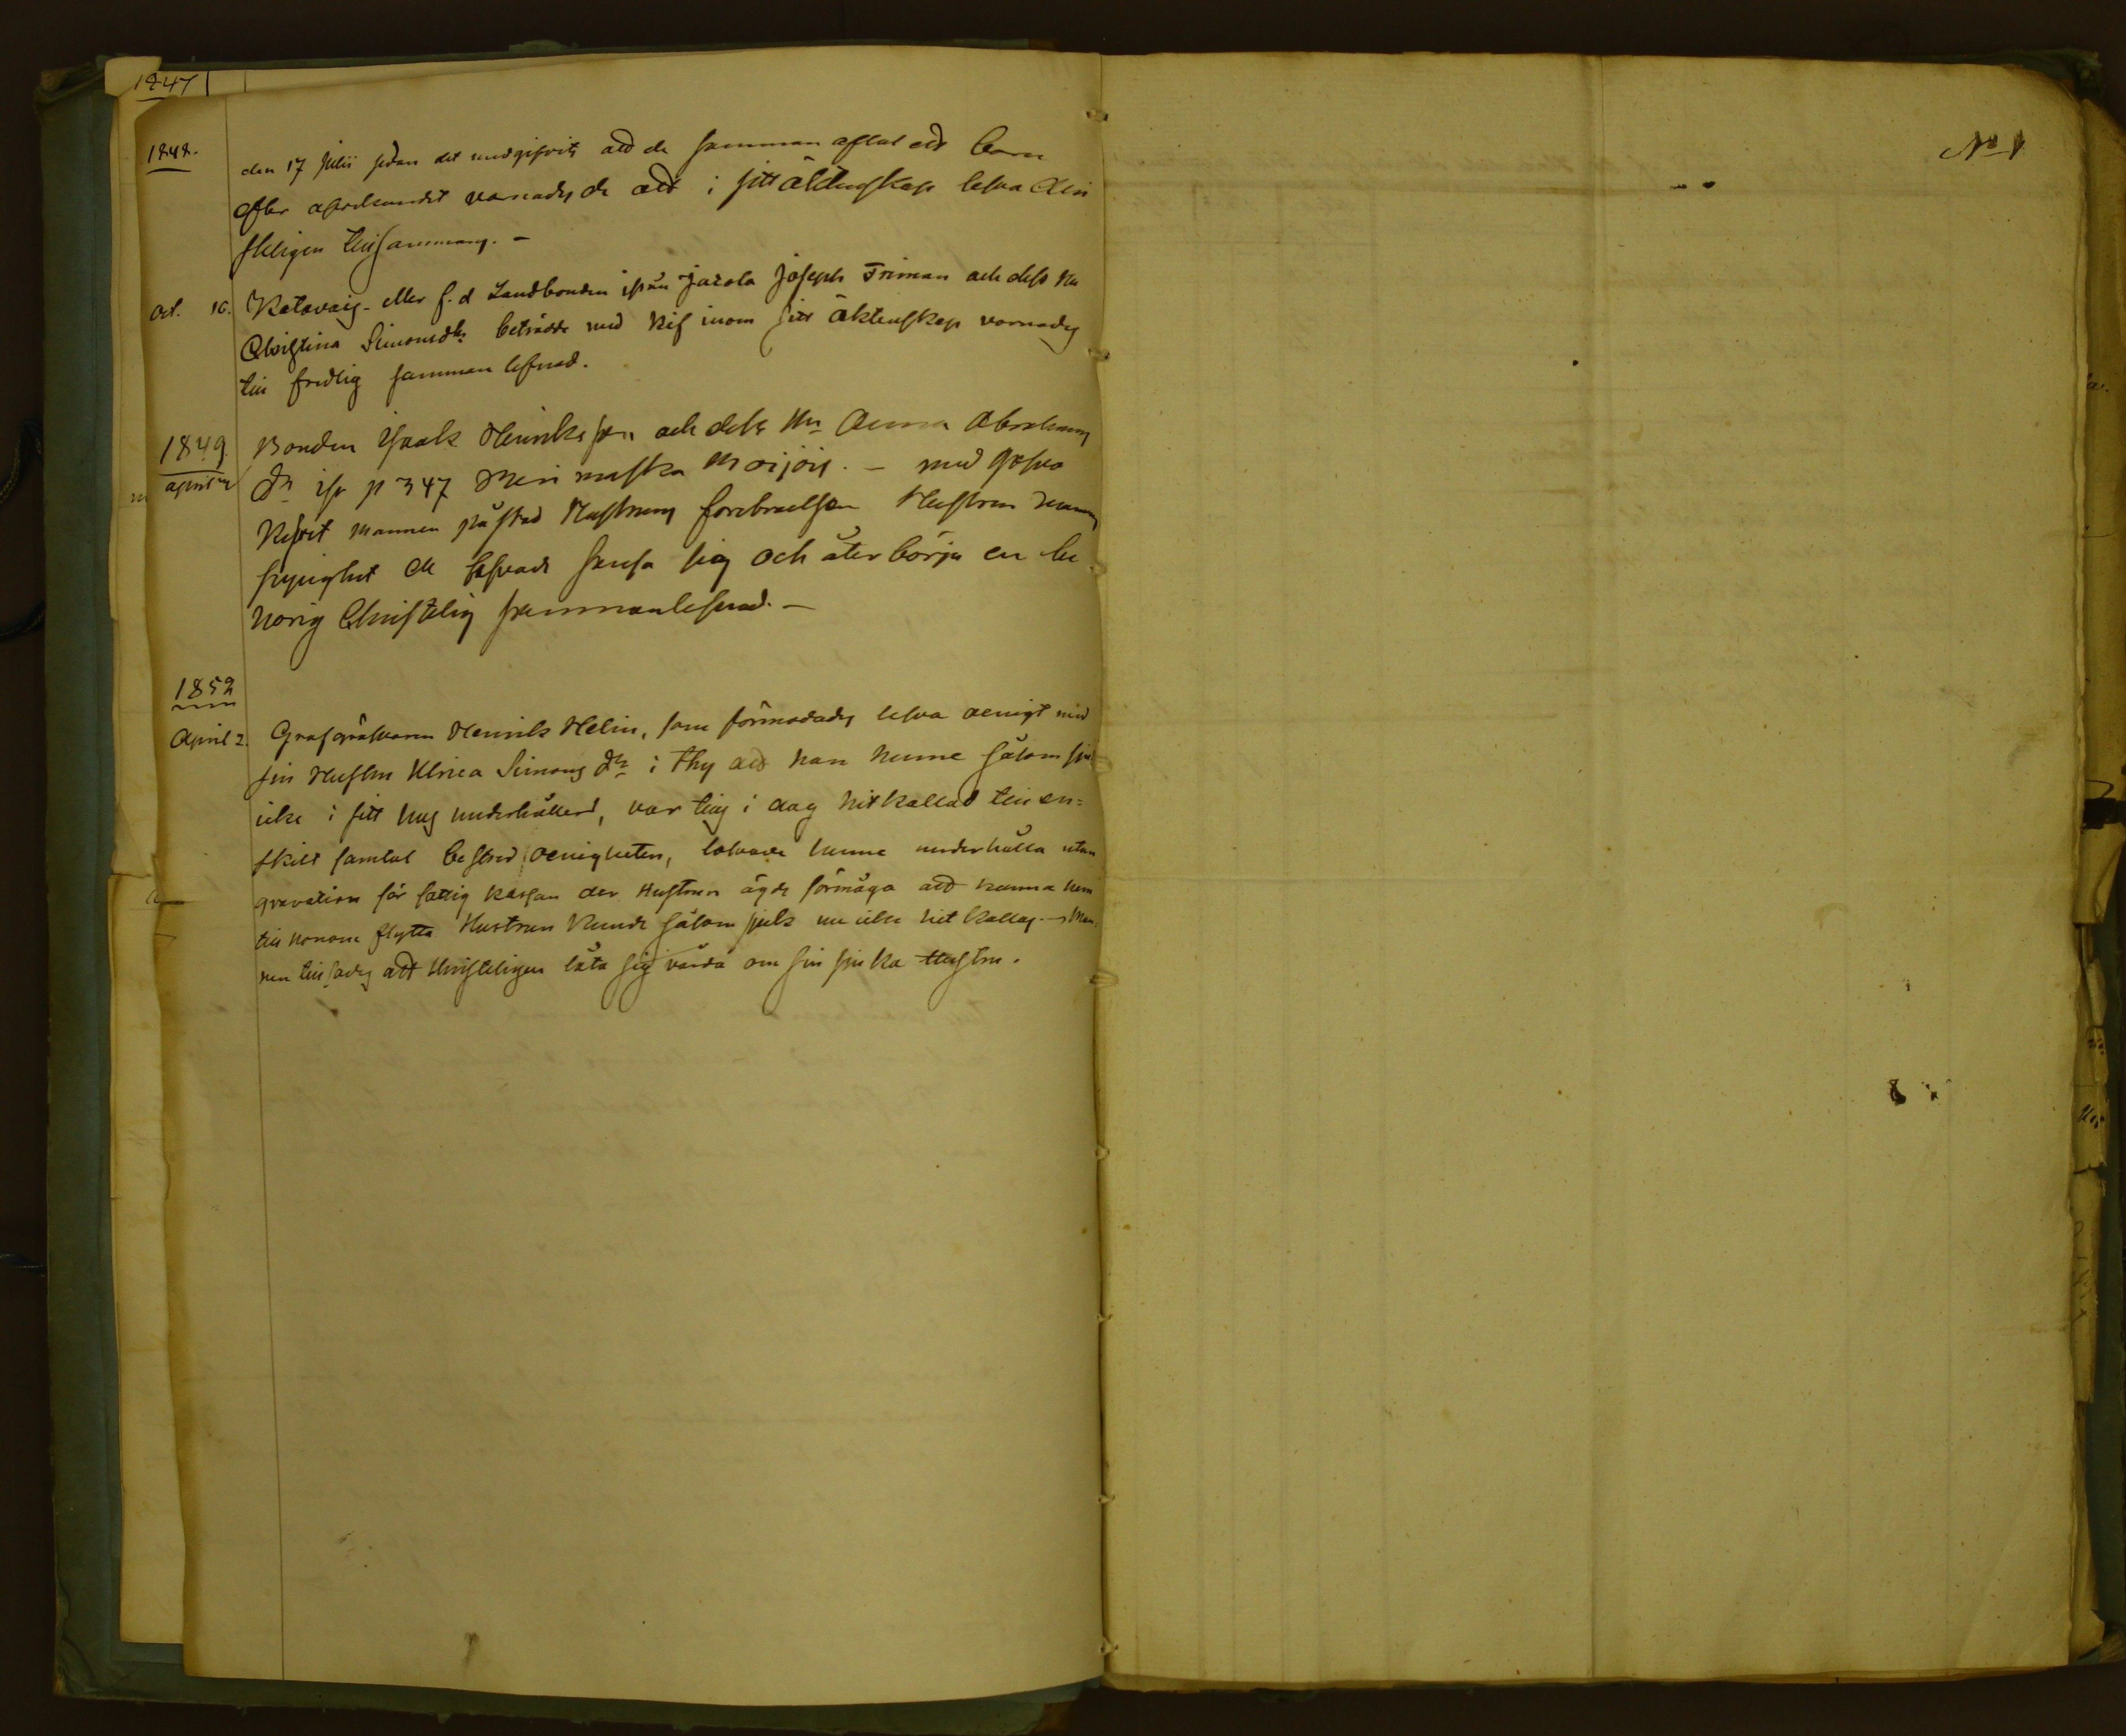 1847
1848.
den 17 Julii sedan det medgifvits att de samman aflat ett barn
efter varnades de att i sitt äktenskap lefva Chri
steligen tillsammans. -
Oct. 10. Katavais - eller f. d Landbonden ifrån Jacola Joseph Friman och dess Hu
Christina Simonsdr beträdde med kif inom sitt äktenskap varnades
till fredlig samman lefnad.
1849.
April Bonden Isaak Henriksson och dess Hu Anna Abrahams
dr ifr p 347 Merimaska Maijois. - med grofva
kifvet mannen påstod Hustruns förebråelser Hustrun mannens
de lofvade sansa sig och åter börja en be
hörig Christelig sammanlefnad. -
1852
April 2. Grafgräfvaren Henrik Helin, som förmodades lefva oenigt med
sin Hustru Ulrica Simons dr i thy att han henne såsom sjuk
icke i sitt hus underhållerd, var till i dag hitkallad till en=
skilt samtal bestred oenigheten, lofvade henne underhålla utan
gravation för fattig kassan der Hustrun ägde förmåga att kunna hem
till honom flytta Hustrun kunde såsom sjuk nu icke hit kallas. - Man
nen tillsades att christeligen låta sig vårda om sin sjuka Hustru.
No 1